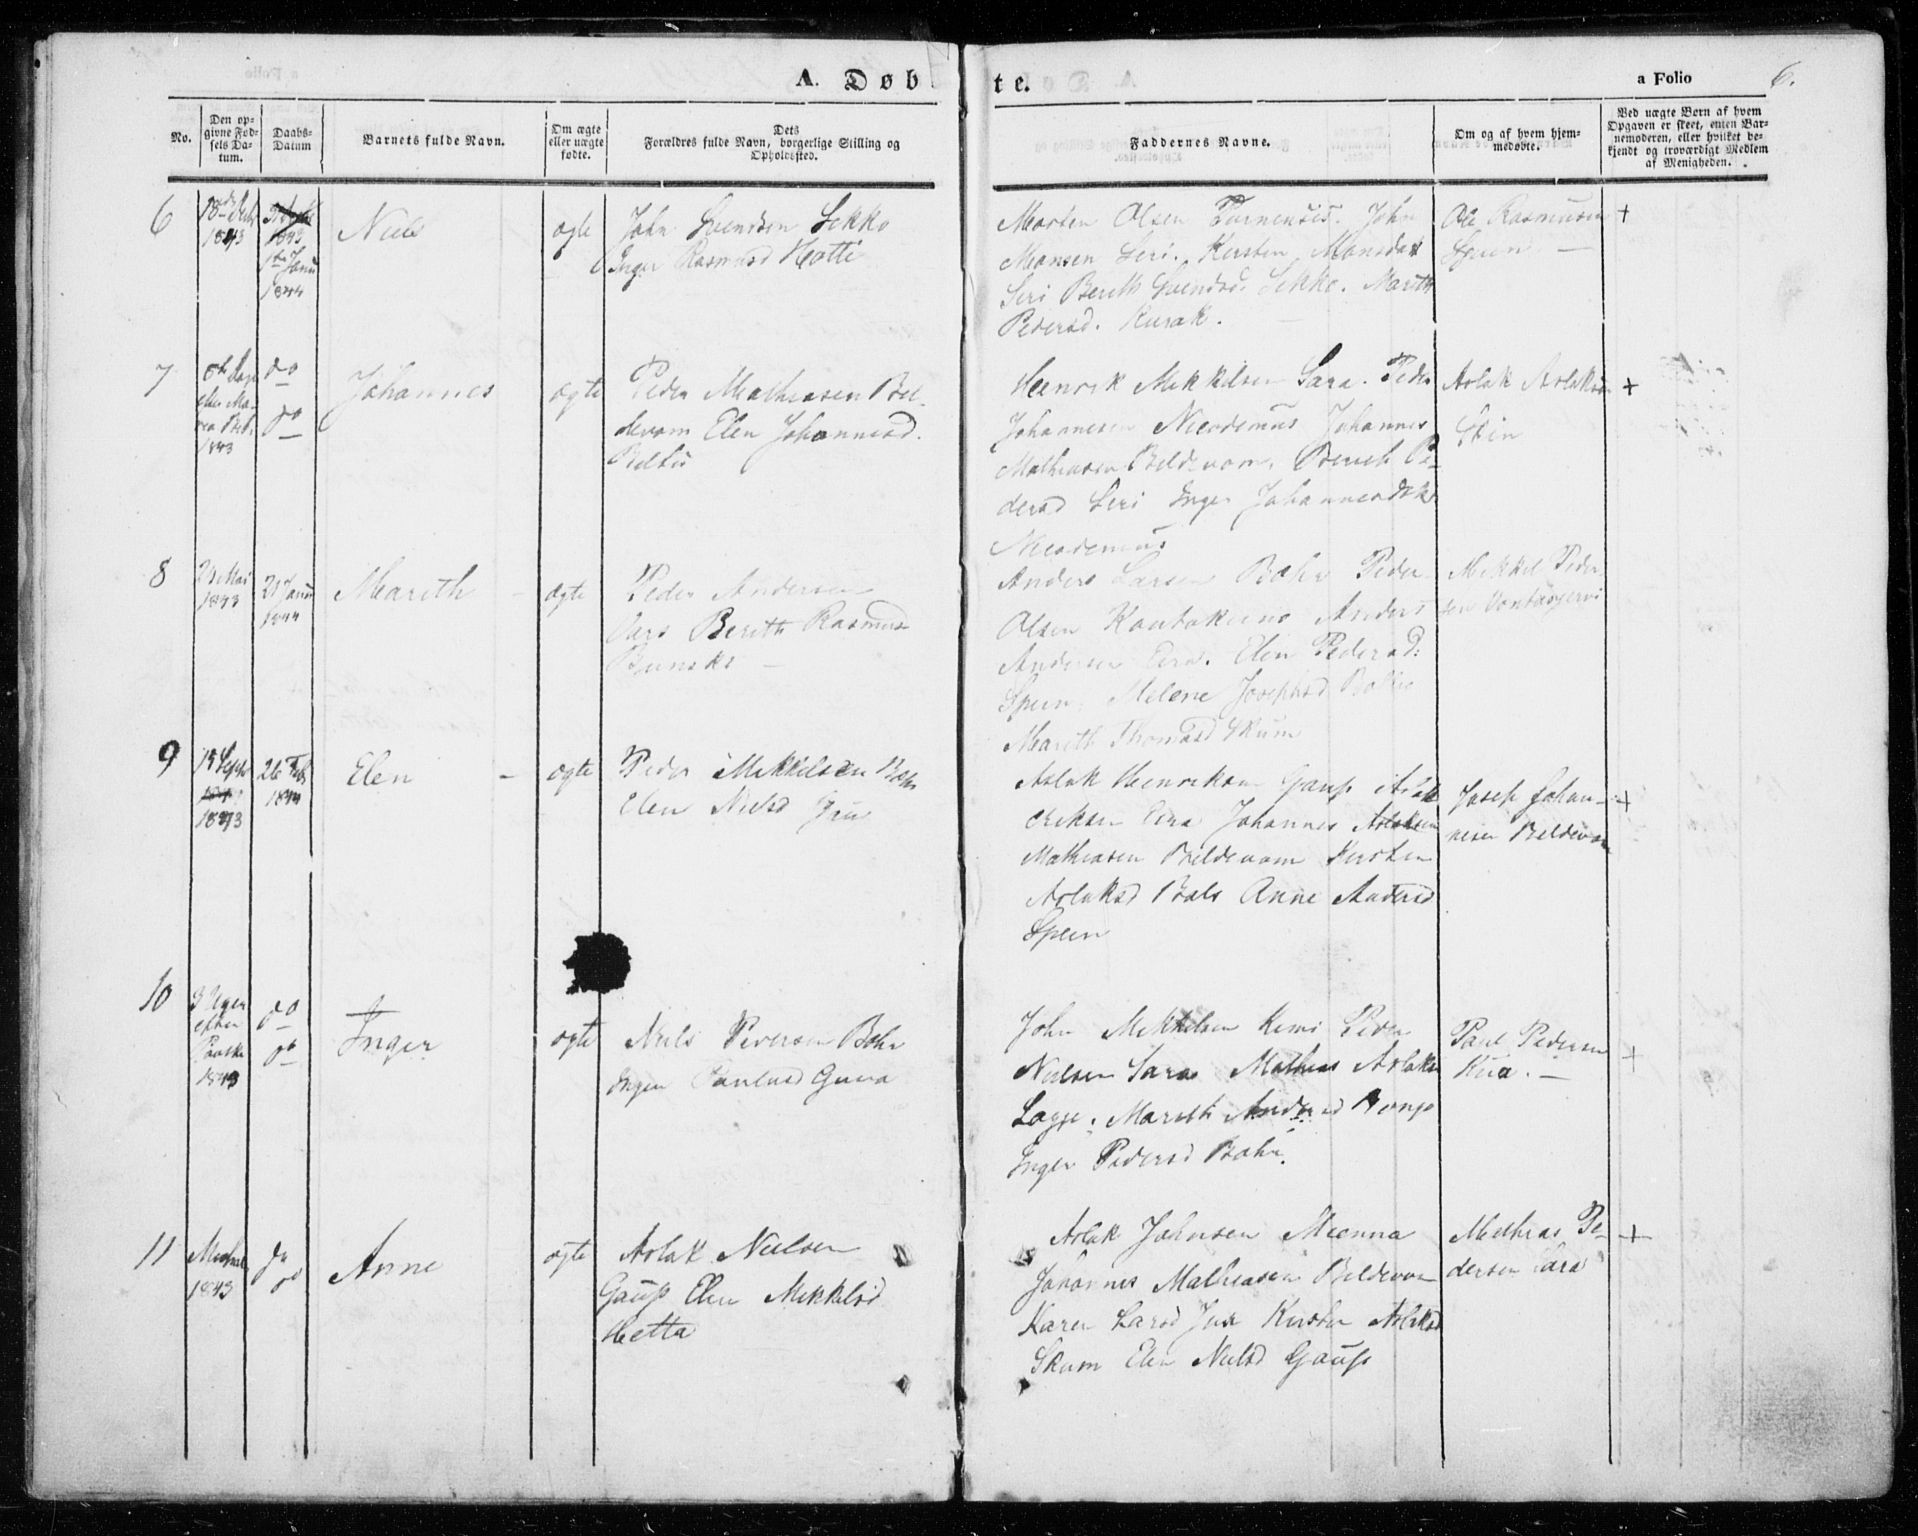 A. Døbte.
a Folio 6.
No.
Den opgivne Fødsels Datum.
Daabs-Datum
Barnets fulde Navn.
Om ægte eller uægte fødte.
Dets Forældres fulde Navn, borgerlige Stilling og Opholdssted.
Faddernes Navne.
Om og af hvem hjemmedøbte.
Ved uægte Børn af hvem Opgaven er skeet, enten Barnemoderen, eller hvilket bekjendt og troværdigt Medlem af Menigheden.
6
1843
1843
1844
Niels
ægte
John Svendsen Sekko
Inger Rasmusd Hotti
Morten Olsen Turnensis. John
Monsen Seri. Kersten Monsdat
Seri Berith Svendsd. Sekko. Marith
Pedersd. Kurak.
Ole Rasmusen
Spein —
+
7
1843
do
do
Johannes
ægte
Peder Mathiasen Bel-
devom Elen Johannesd.
Henrik Mikkelsen Sara. Peder
Johannesen Nicodemus Johannes
Mathiasen Beldevom. Berith Pe-
dersd Seri Inger Johannesd
Nicodemus
Aslak Aslaksen
+
8
24 Mai
1843
21 Janu
1844
Marith
ægte
Peder Andersen
Berith Rasmus
Anders Larsen Bahr Peder
Olsen Kautokeino Anders
Andersen Eira. Elen Pedersd.
Spein, Melene Josephsd
Marith Thomasd Skum
Mikkel Peder
sen
9
19 Septr
1843
26 Feb
1844
Elen
ægte
Peder Mikkelsen Bahr
Elen Nielsd
Aslak Henriksen Gaup Aslak
Eriksen Eira Johannes Aslaksen
Mathiasen Beldevom Kersten
Aslaksd Bals Anne Andersd
Spein
Josef Johan-
nesen Beldevom
+
10
3 Uger
efter
Paaske
1843
do
do
Inger
ægte
Niels Pedersen Bahr
Inger Paulusd
John Mikkelsen Kemi Peder
Nielsen Sara Mathias Aslaks
Logje. Marith Andersd
Inger Pedersd Bahr.
Paul Pedersen
Kua. —
+
11
1843
do
do
Anne
ægte
Aslak Nielsen
Gaup Elen Mikkelsd
Hetta
Aslak Johnsen Mienna
Johannes Mathiasen Beldevom
Karen Larsd Jux Kirsten Aslaksd
Skum Elen Nielsd Gaup
Mathias Pe-
dersen Sara
+